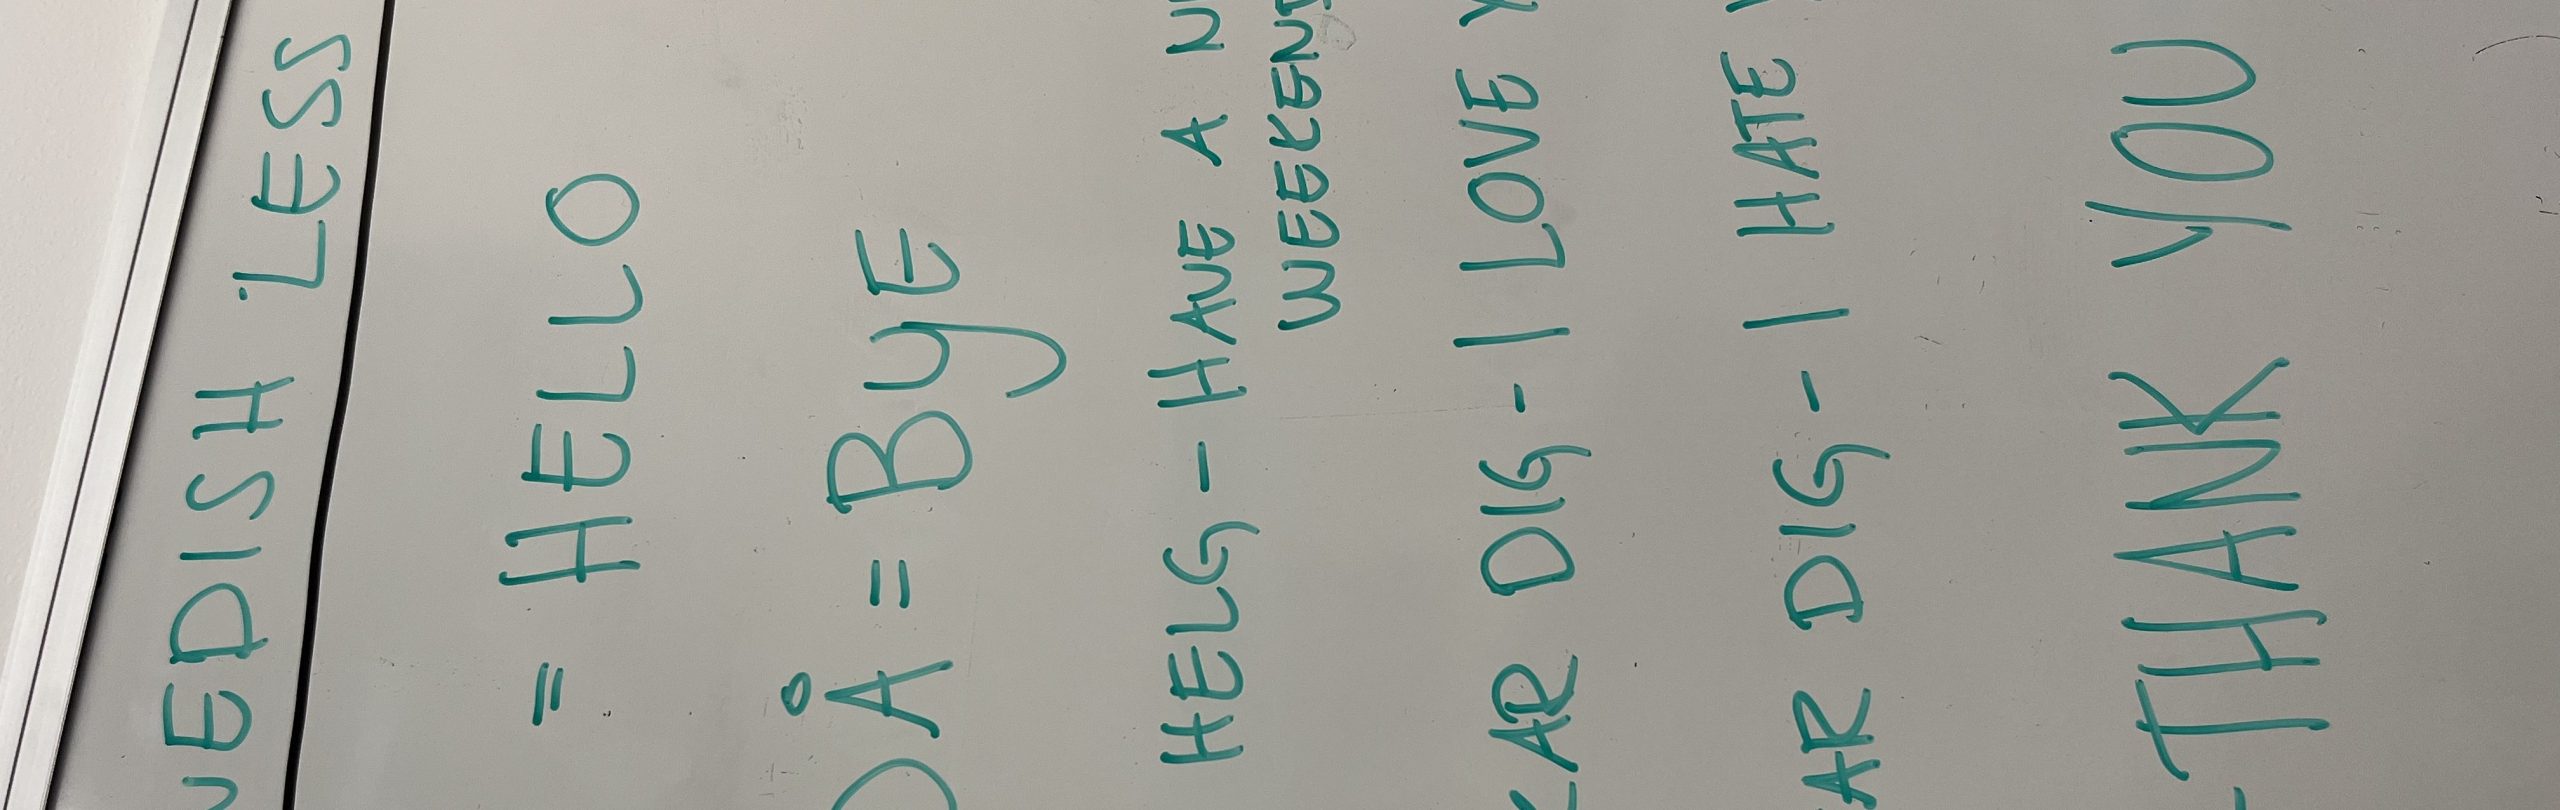 WEDISH LESS
= HELLO
DÅ = BYE
HELG - HAVE A NI
WEEKEND
KAR DIG - I LOVE Y
AR DIG - I HATE Y
- THANK YOU